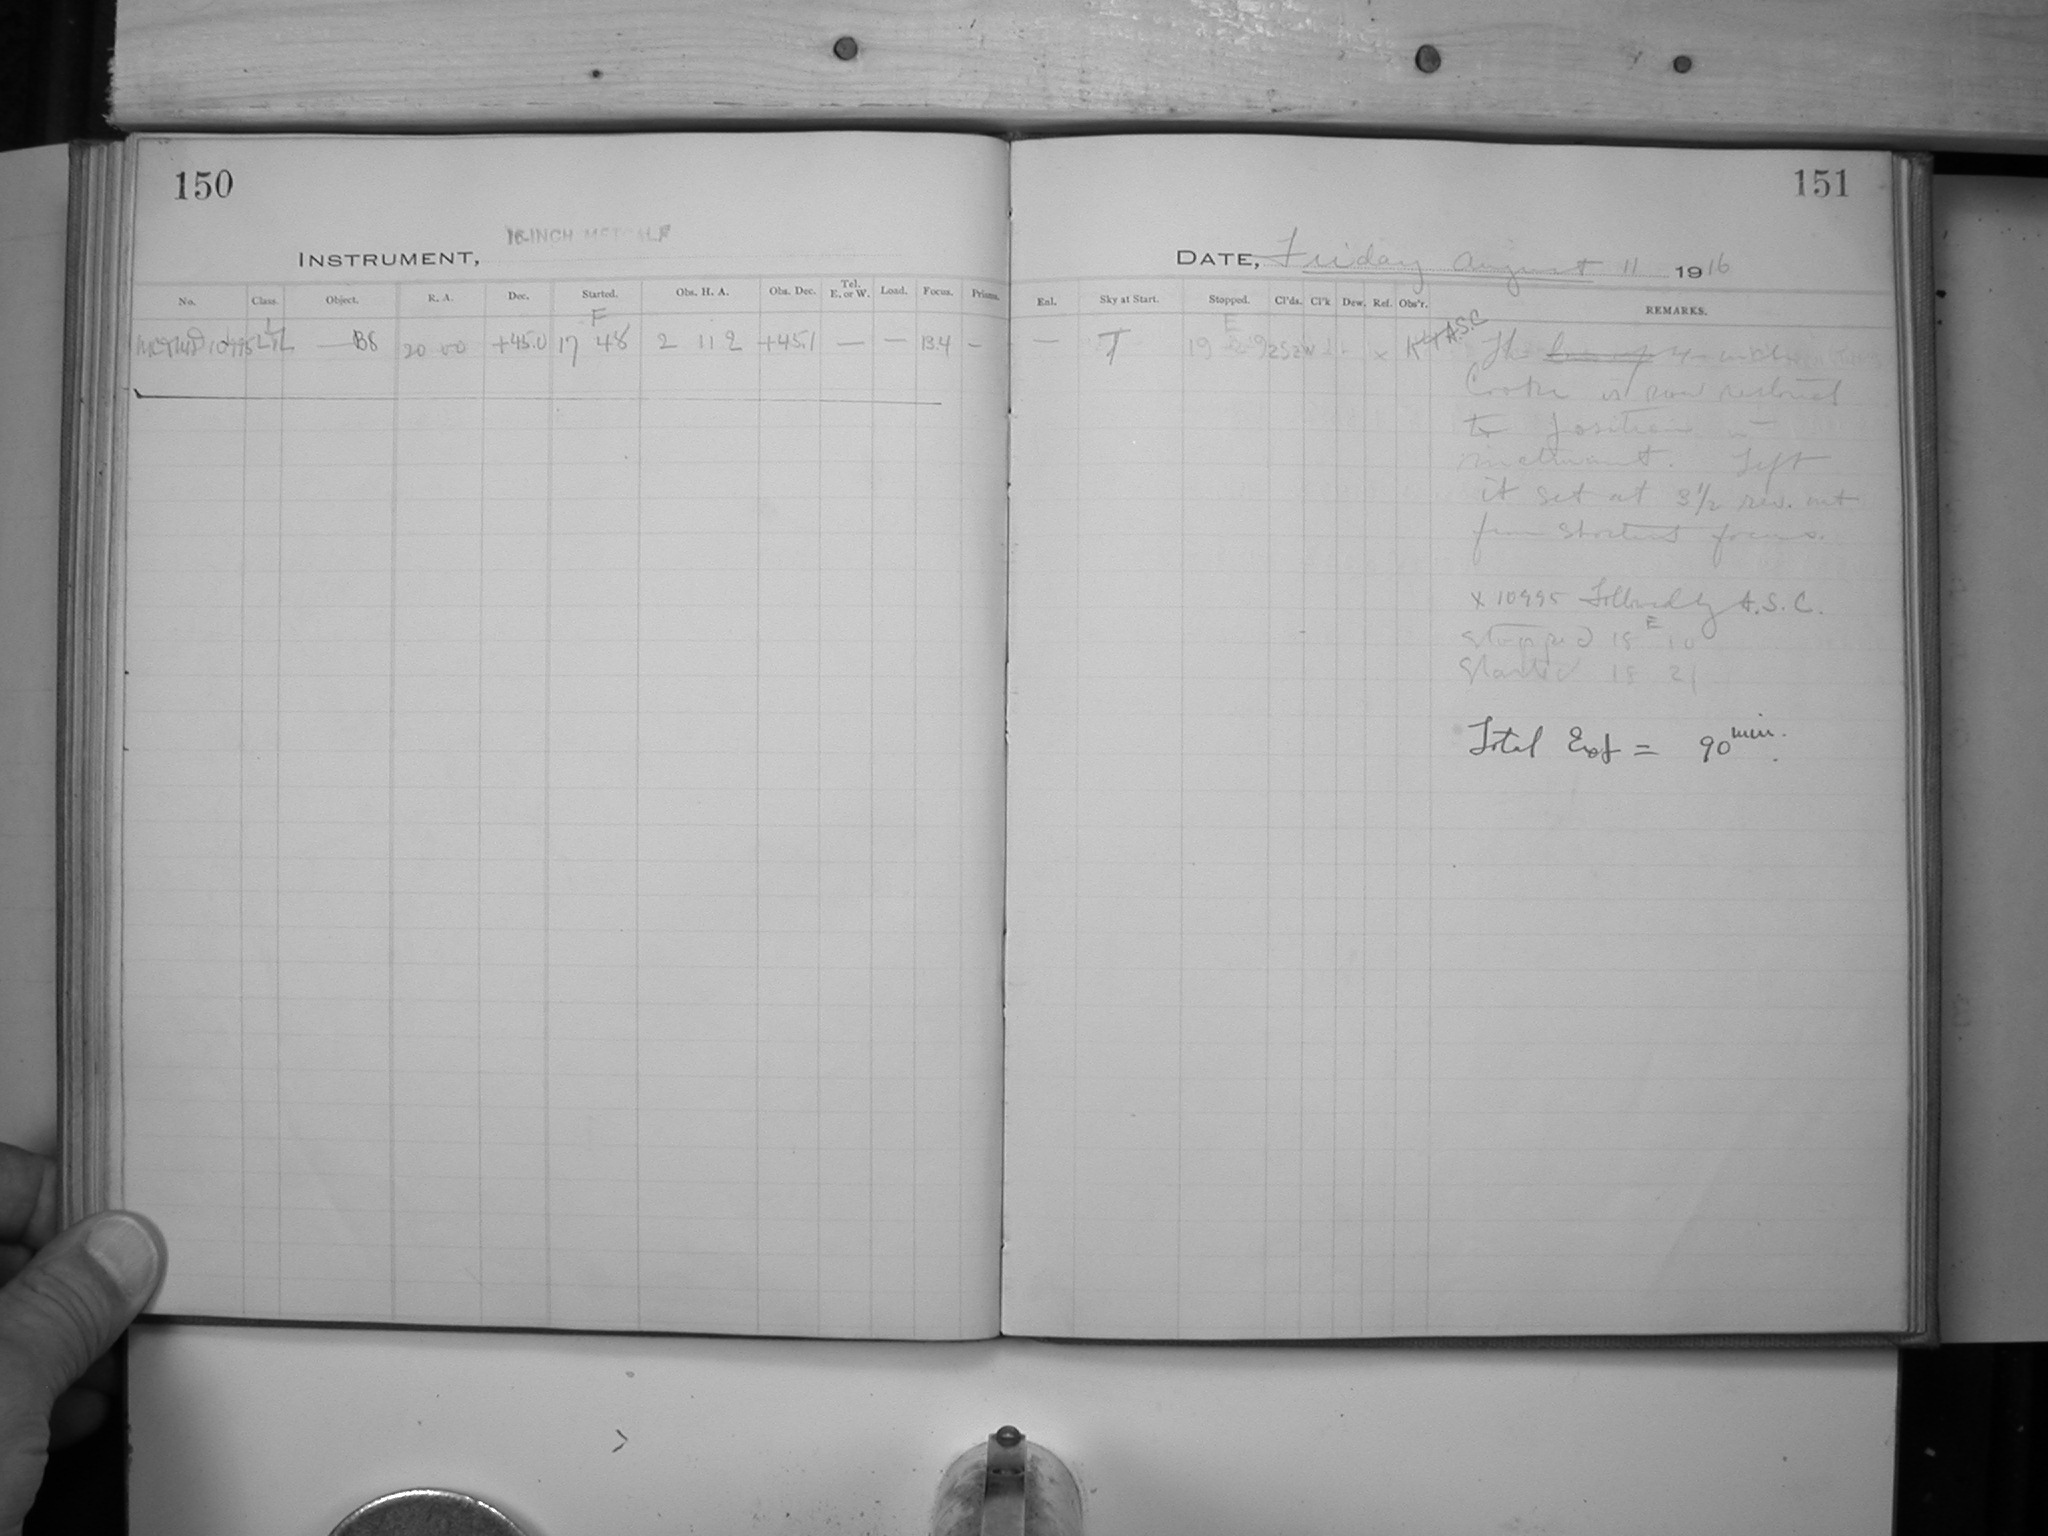 150
151
16-INCH METCALF
INSTRUMENT,
DATE, Friday August 11 1916
No. Class. Object. R. A. Dec. Started. Obs. H. A. Obs. Dec. Tel. E. or W. Load. Focus. Prisms.
Enl. Sky at Start. Stopped. Cl'ds. Cl'k Dew. Ref. Obs'r. REMARKS.
F
10995 L — B8 20 00 +45.0 17 48 2 11 2 +45.1 — — 13.4 —
E
— T 19 29 x A.S.C The
Cooke is now restored
to position in
. Left
it set at 3 1/2 rev. out
from shortest focus.
x 10995 Followed by A.S.C.
Stopped 18 E 10
Started 18 21
Total Exp = 90 min.